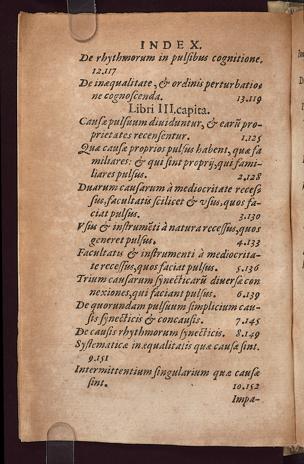 INDEX.
De rhythmorum in pulsibus cognitione.
12.117
De inæqualitate, & ordinis perturbatio⸗
ne cognoscenda. 13.119
Libri III. capita.
Causæ pulsuum diuiduntur, & earũ pro⸗
prietates recensentur. 1.125
Quæ causæ proprios pulsus habent, quæ fa
miliares: & qui sint proprij, qui fami⸗
liares pulsus. 2.128
Duarum causarum à mediocritate recess⸗
sus, facultatis scilicet & vsus, quos fa⸗
ciat pulsus. 3.130
Vsus & instrumẽti à natura recessus, quos
generet pulsus. 4.133
Facultatis & instrumenti à mediocrita⸗
te recessus, quos faciat pulsus. 5.136
Trium causarum synecticarũ diuersæ con
nexiones, qui faciant pulsus. 6.139
De quorundam pulsuum simplicium cau⸗
sis synecticis & concausis. 7.145
De causis rhythmorum synecticis. 8.149
Systematicæ inæqualitatis quæ causæ sint.
9.151
Intermittentium singularium quæ causæ
sint. 10.152
Impa-